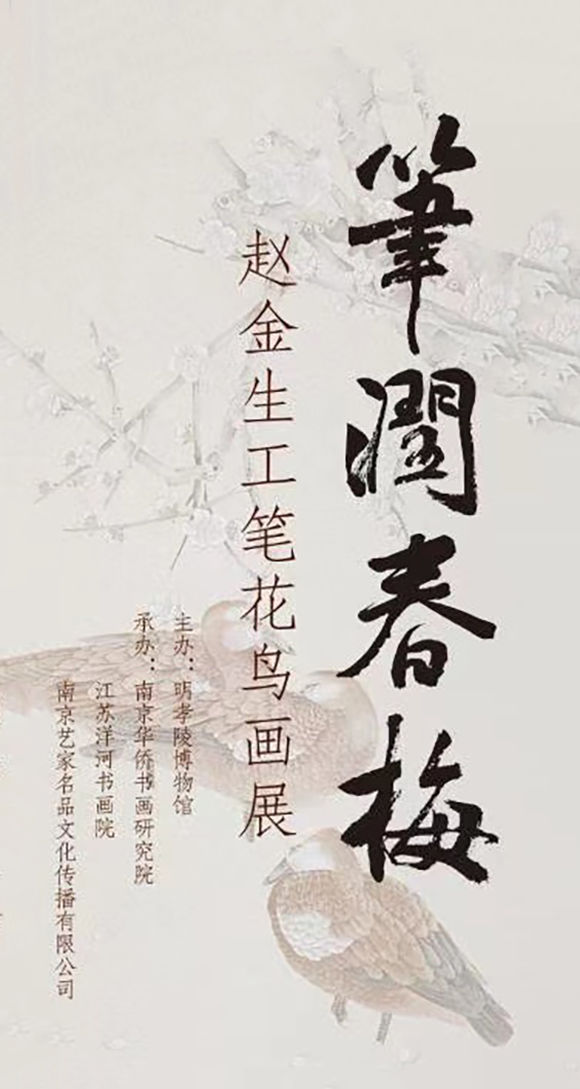 筆潤春梅
赵金生工笔花鸟画展
主办：明孝陵博物馆
承办：南京华侨书画研究院
江苏洋河书画院
南京艺家名品文化传播有限公司